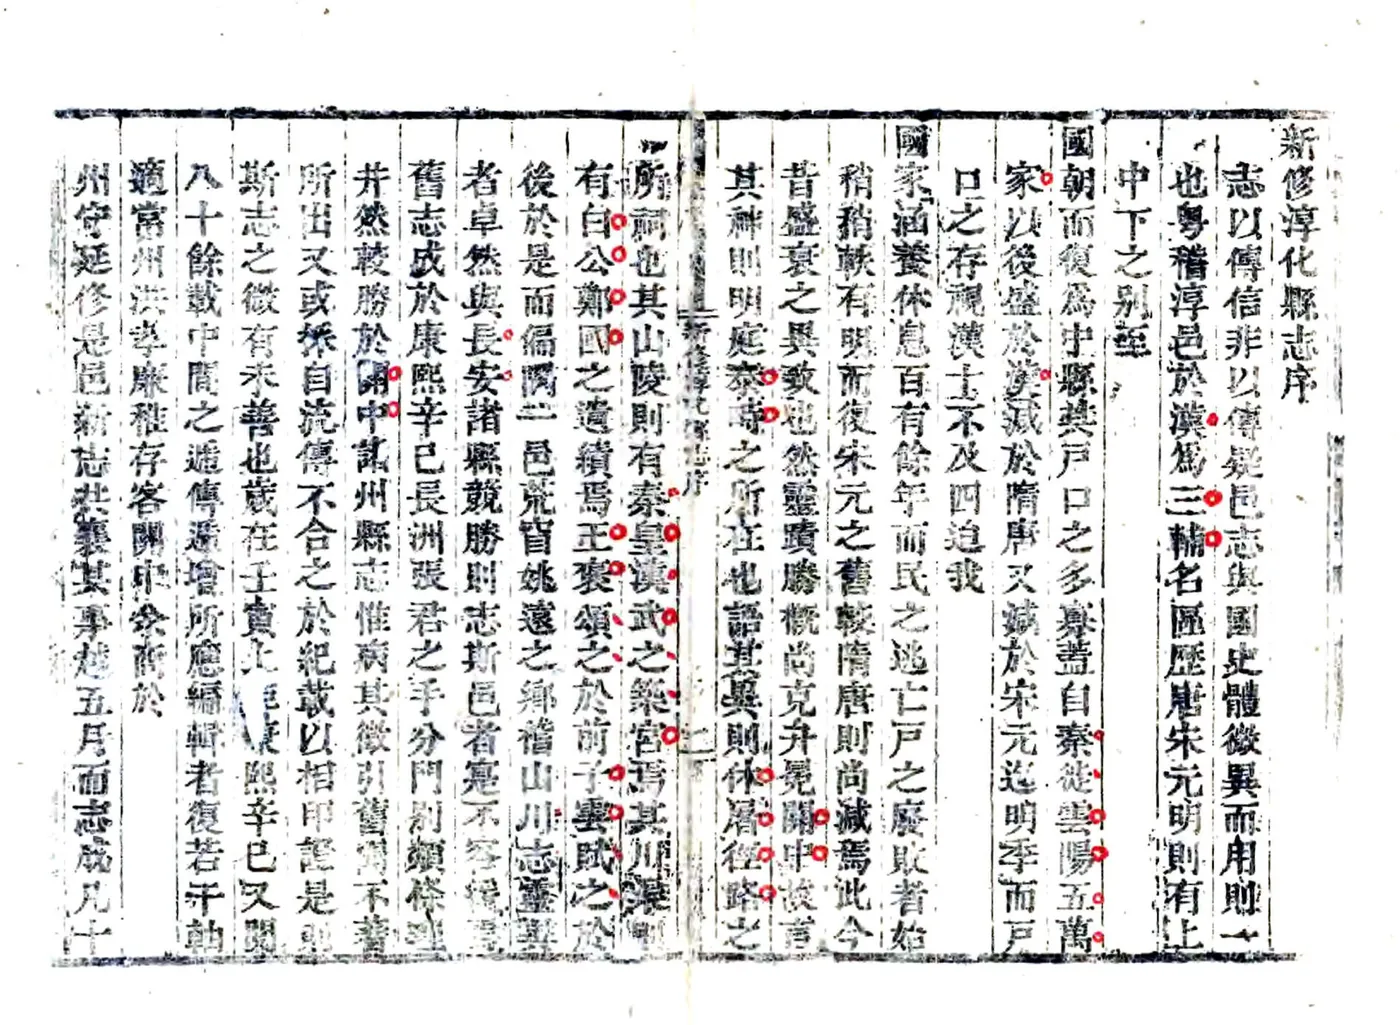 新修淳化縣志序
志以傳信非以傳疑邑志與國史體微異而用則一
也粵稽淳邑於漢為三輔名區歷唐宋元明則有上
中下之別至
國朝而復為中縣共戶口之多寡蓋自秦徙雲陽五萬
家以後盛於漢減於隋唐又減於宋元迄明季而戶
口之存視漢十不及四迨我
國家涵養休息百有餘年而民之逃亡戶之廢敗者始
稍稍軼有明而復宋元之舊較隋唐則尚減焉此今
昔盛衰之異致也然靈蹟勝概尚克弁冕關中故言
其神則明庭泰畤之所在也語其異則休屠徑路之
新修淳化縣志序 二
所祠也其山陵則有秦皇漢武之築宮焉其川渠則
有白公鄭國之遺績焉王褒頌之於前子雲賦之於
後於是而偏隅一邑荒窅姚遠之鄉稽山川志靈異
者卓然與長安諸縣競勝則志斯邑者寔不容緩焉
舊志成於康熙辛巳長洲張君之手分門別類條理
井然較勝於關中諸州縣志惟病其徵引舊聞不著
所出又或採自流傳不合之於紀載以相印證是
斯志之微有未善也歲在壬寅上距康熙辛巳又閱
八十餘載中間之遞傳遞增所應編輯者復若干軸
適當州洪孝廉稚存客關中余商於
州守延修是邑新志共襄某事越五月而志成凡十